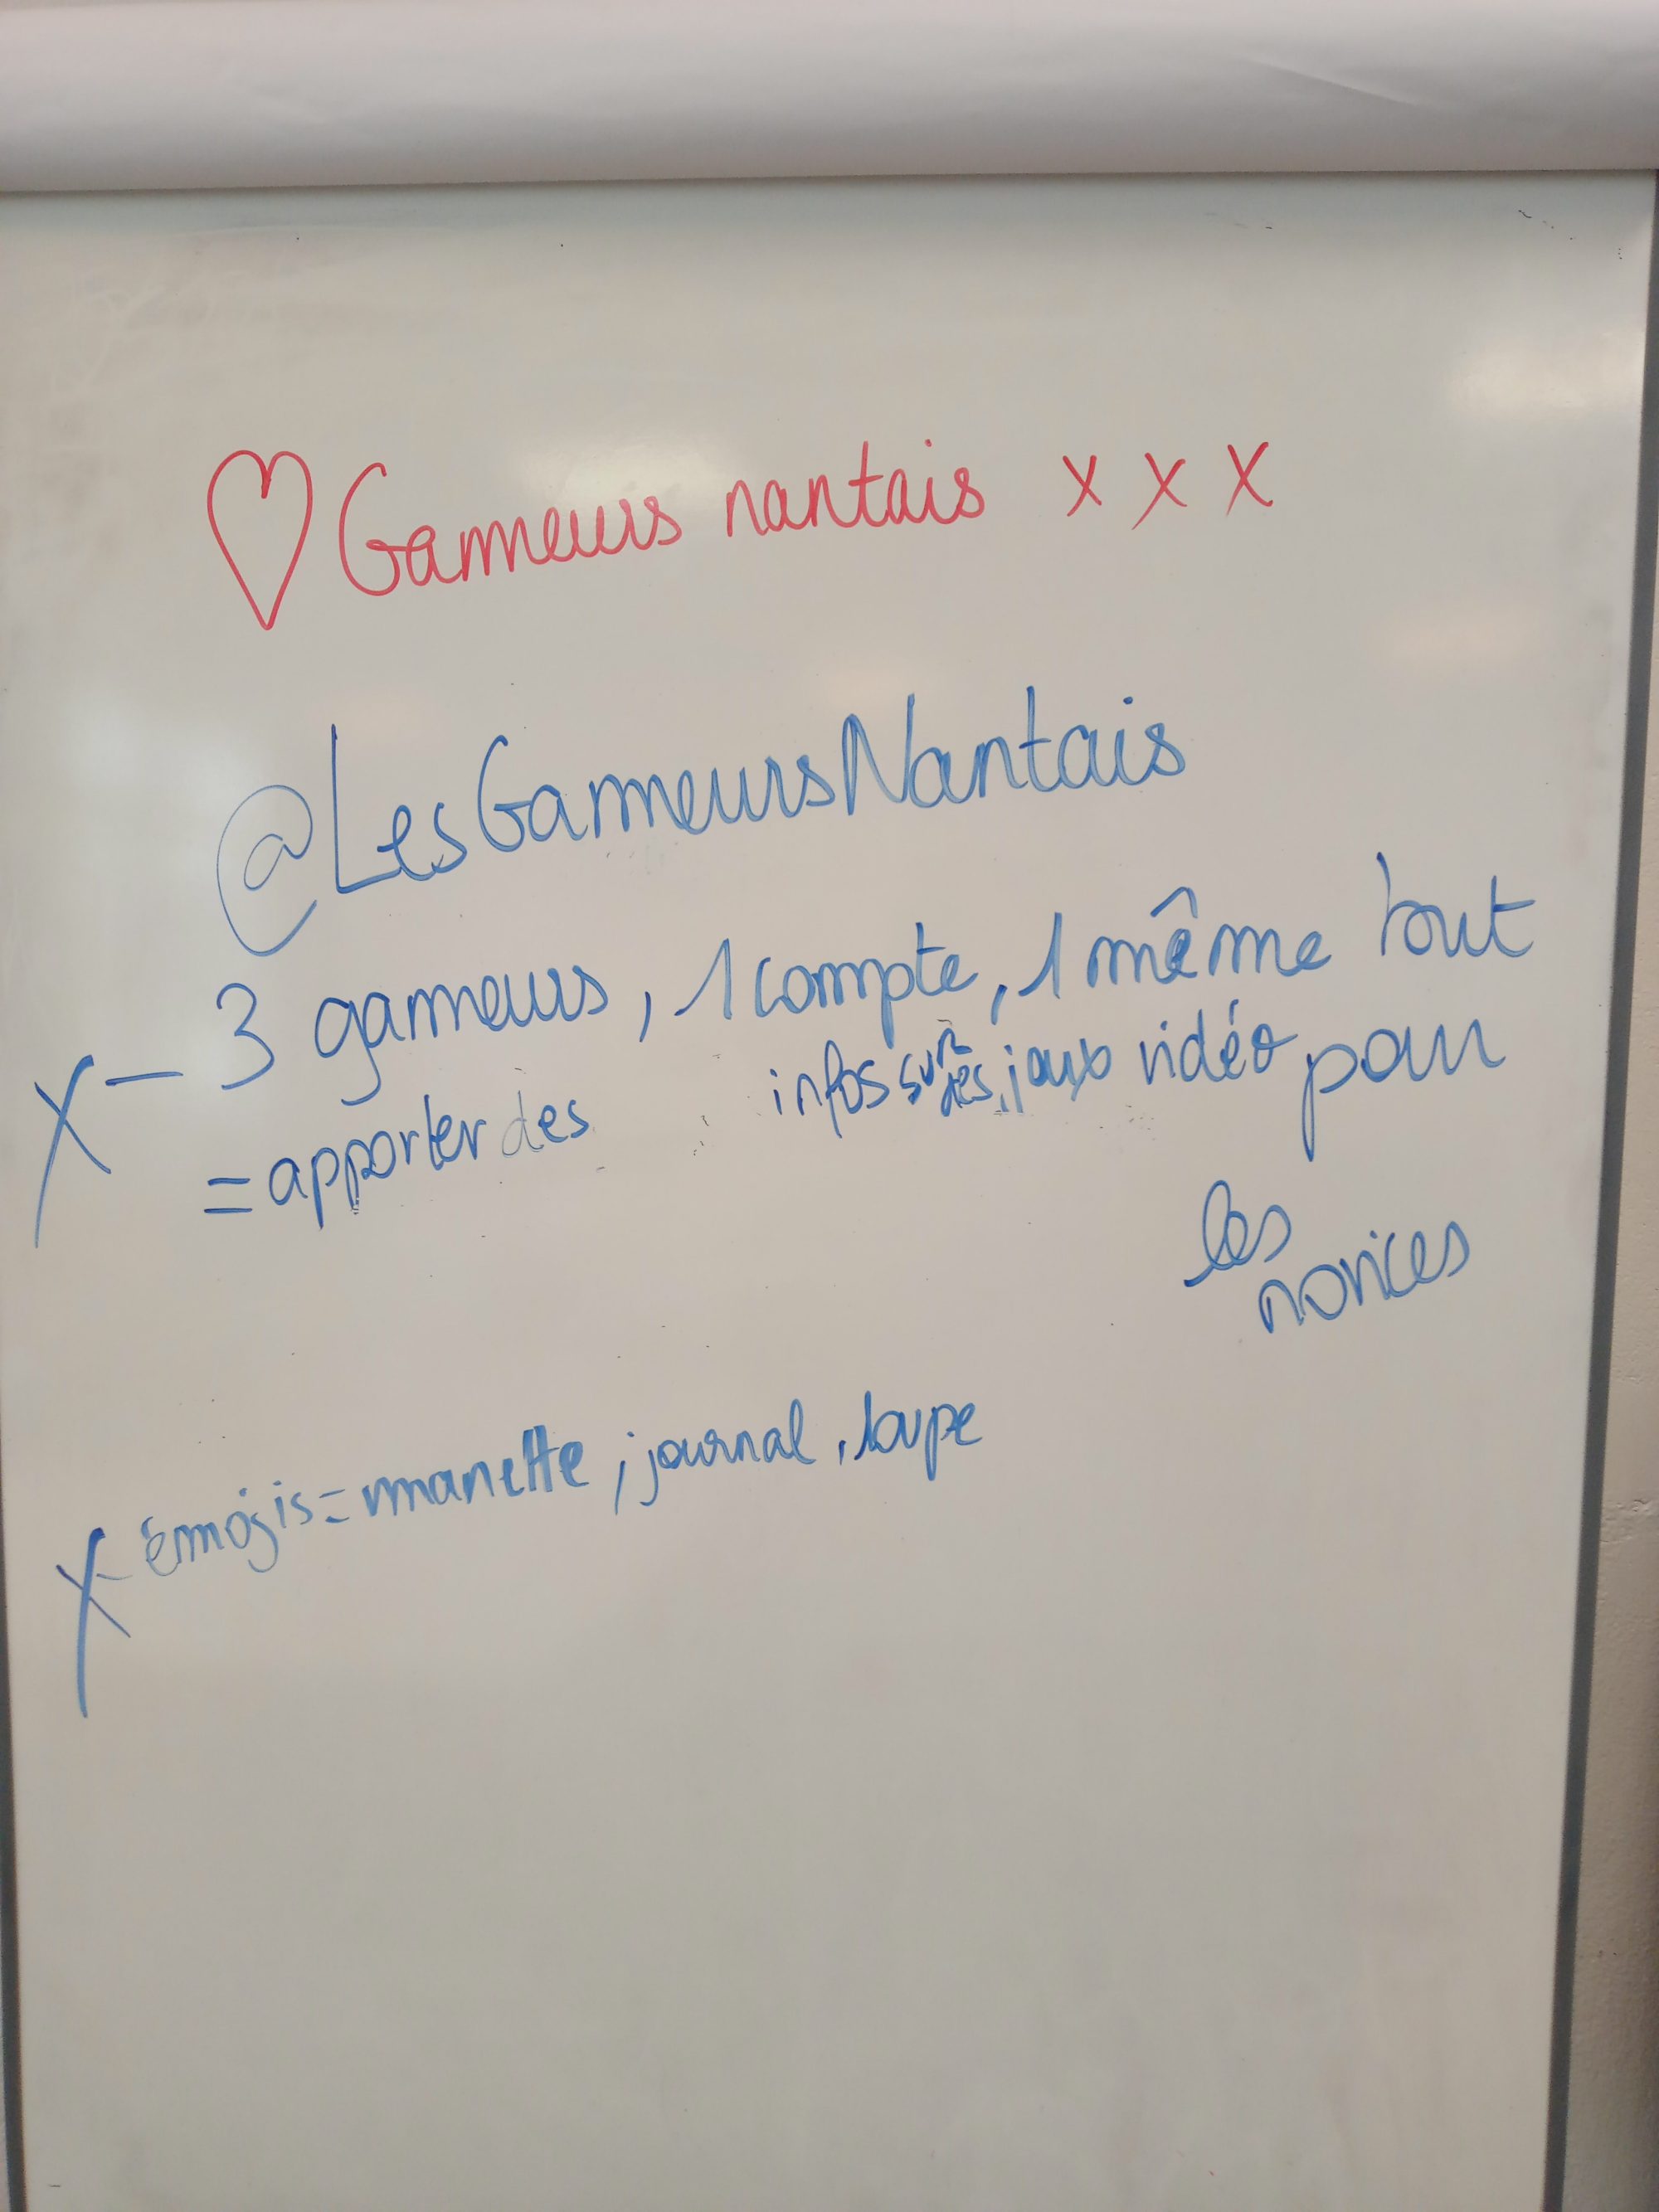 ♡ Gameurs nantais x x x
@LesGameursNantais
X - 3 gameurs, 1 compte, 1 même tout
= apporter des infos sur des jeux vidéo pour
les
novices
X - émojis = manette, journal, loupe